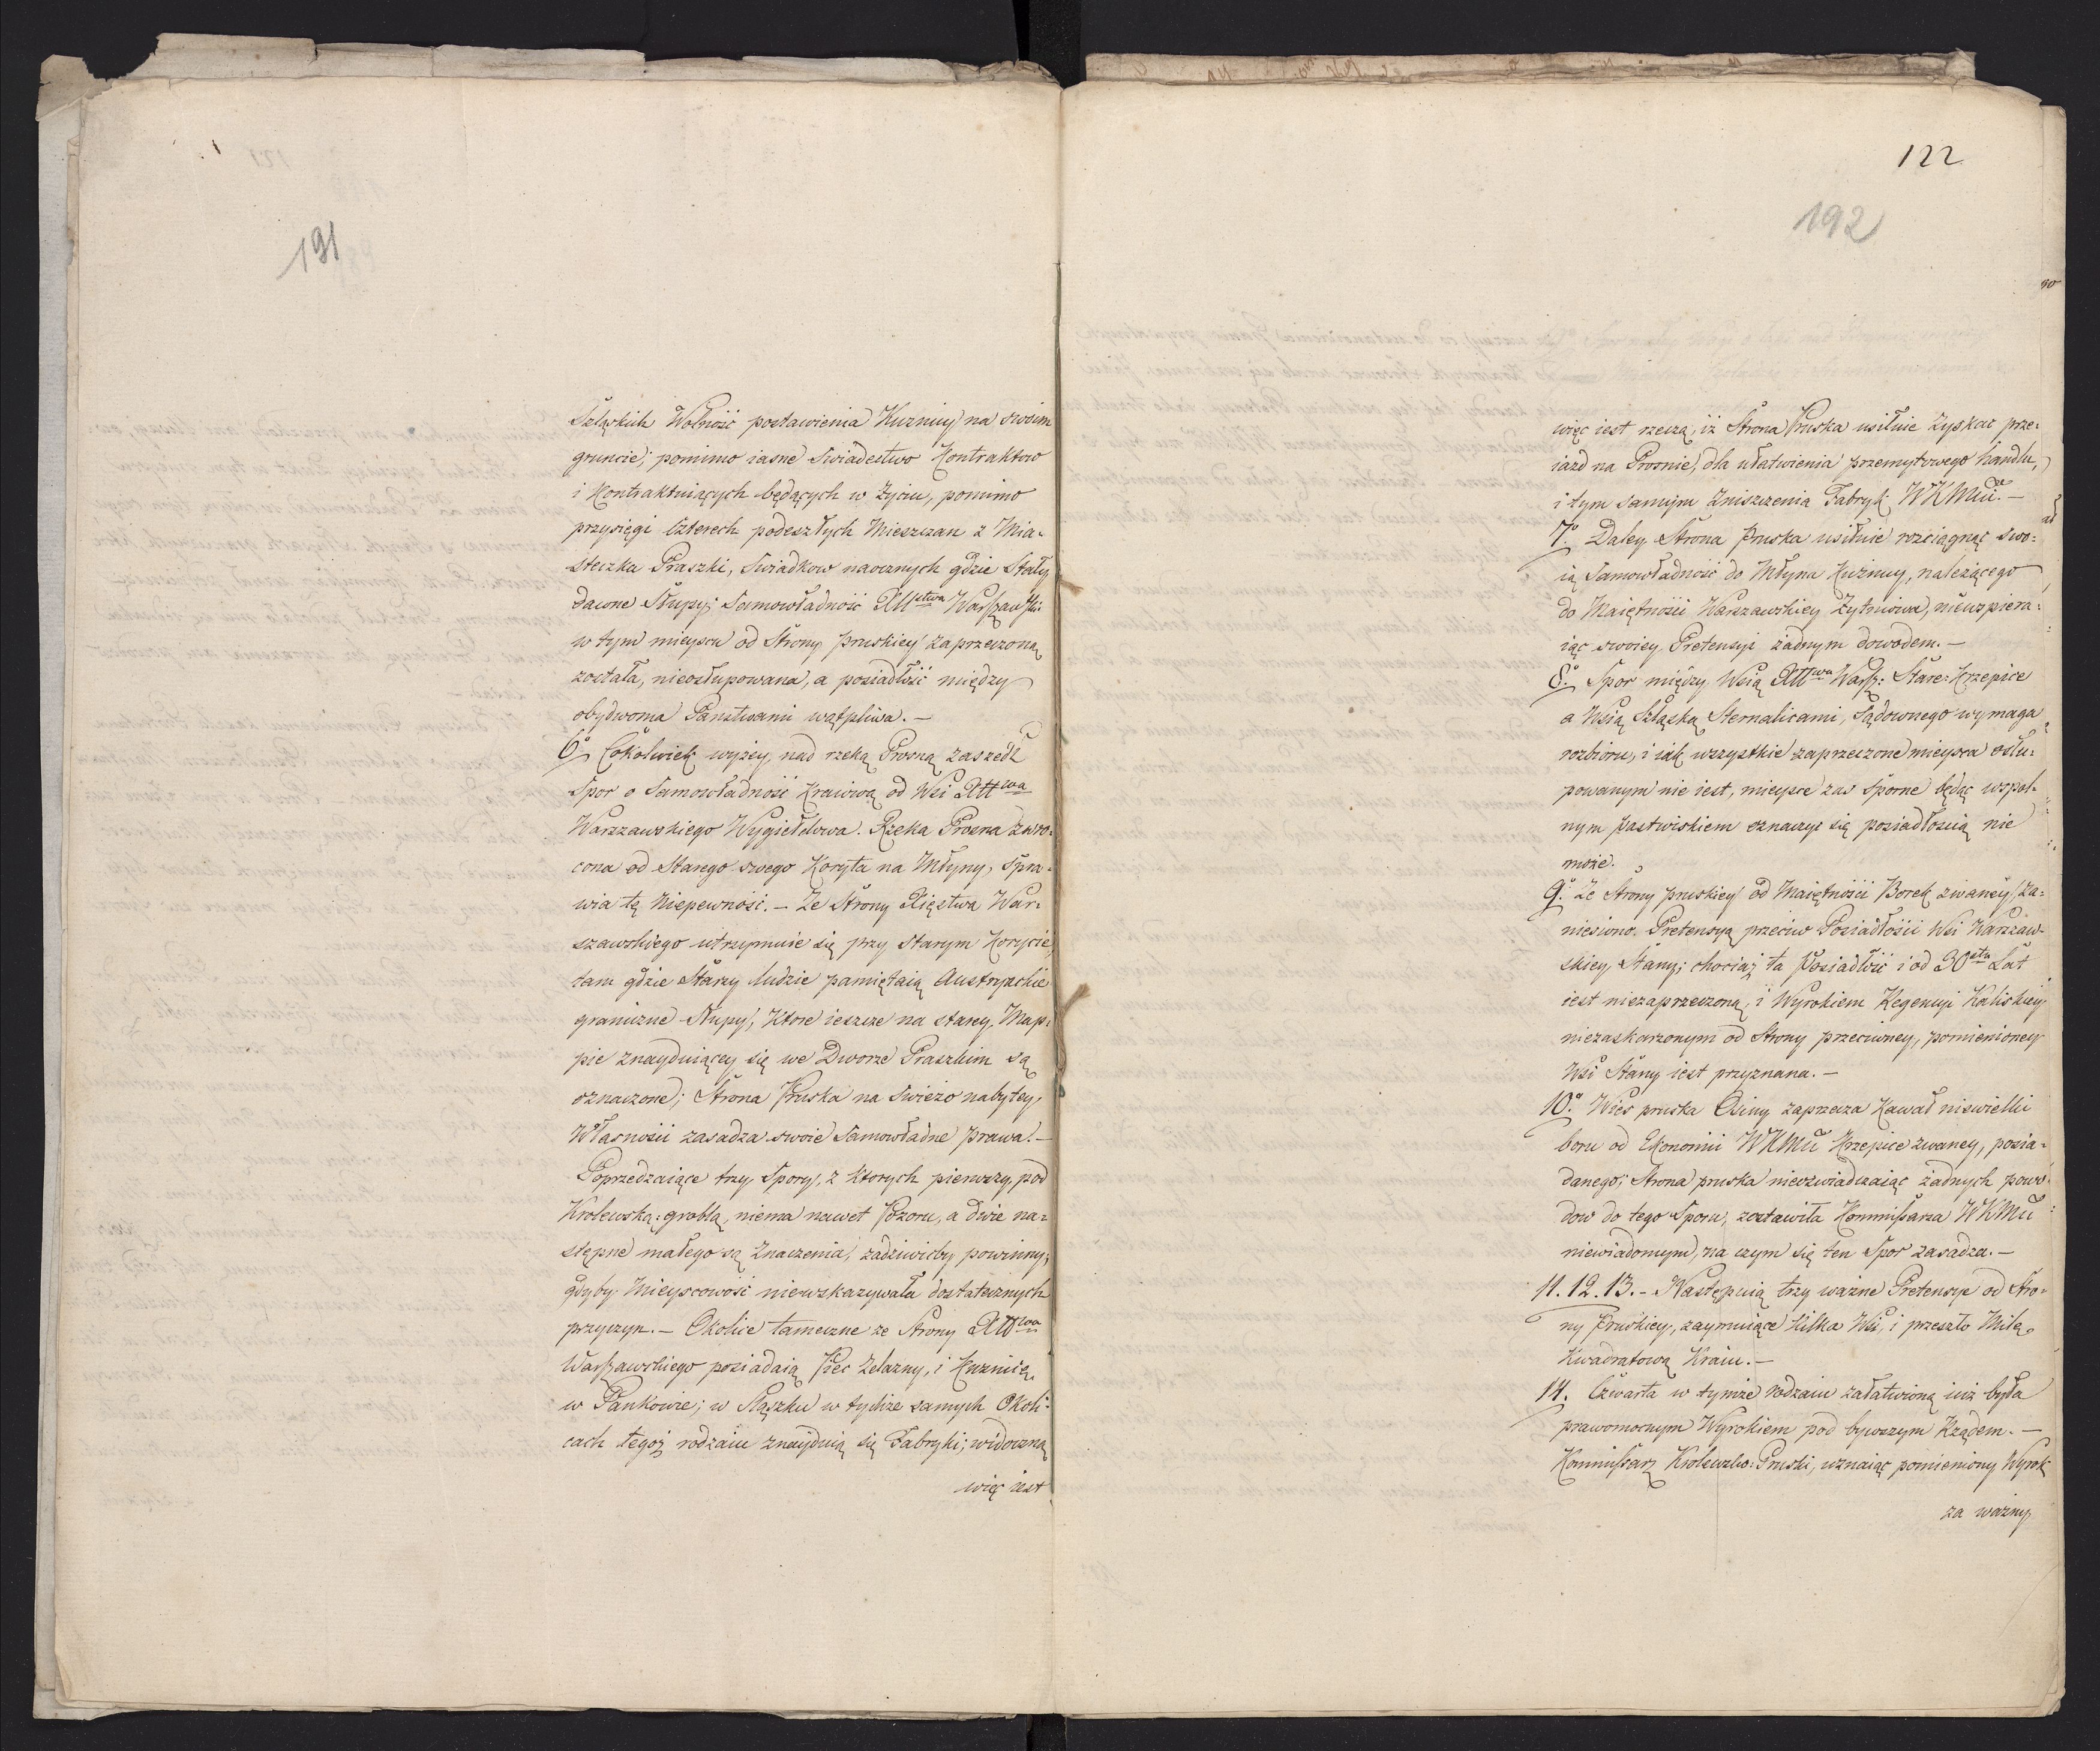 191
Szląskich Wolność postawienia Kuźnicy na swoim
gruncie; pomimo iasne swiadectwo Kontraktow
i Kontraktuiących będących w życiu, pomimo
przysięgi czterech podeszłych Mieszczan z Mia-
steczka Praszki, Swiadkow naocznych gdzie Stały
dawne Słupy; Samowładność Xttwa Warszawski:
w tym mieyscu od Strony pruskiey zaprzeczoną
została, nieosłupowana, a posiadłość między
obydwoma Panstwami wątpliwa. —
6° Cokolwiek wyżey nad rzeką Prosną zaszedł
Spor o Samowładność Kraiową od Wsi Xttwa
Warszawskiego Wygiełdowa. Rzeka Prosna zwro-
cona od Starego swego Koryta na Młyny, spra-
wia tę Niepewność. — Ze Strony Xięstwa War-
szawskiego utrzymuie się przy starym Korycie,
tam gdzie Starzy ludzie pamiętaią Austryackie
graniczne Słupy, Ktore ieszcze na starey Map-
pie znayduiącey się we Dworze Praszkim są
oznaczone; Strona Pruska na swieżo nabytey
Własności zasadza swoie samowładne prawa. —
Poprzedzaiące trzy Spory, z ktorych pierwszy pod
Krolewską: groblą, niema nawet Pozoru, a dwie na-
stępne małego są Znaczenia, zadziwićby powinny,
gdyby Mieyscowość niewskazywała dostatecznych
przyczyn. — Okolice tameczne ze Strony Xttwa
Warszawskiego posiadaią Piec żelazny, i Kuźnicę
w Pankowie; w Sląszku w tychże samych Okoli-
cach tegoż rodzaiu znayduią się Fabryki; widoczną
więc iest
122
192
więc iest rzeczą, iż Strona Pruska usiłnie zyskac prze-
iazd na Prosnie, dla ułatwienia przemytowego handlu,
i tym samym zniszczenia Fabryk WKMci. —
7° Daley Strona Pruska usiłuie rozciągnąć swo-
ią Samowładność do Młyna Kuźnicy, należącego
do Maiętności Warszawskiey Żytniowa, nieuspiera-
iąc swoiey Pretensyi żadnym dowodem. —
8° Spor między Wsią Xttwa Warsz: Stare-Krzepice
a Wsią Szląską Sternalicami, Sądownego wymaga
rozbioru, i iak wszystkie zaprzeczone mieysca osłu-
powanym nie iest, mieysce zas sporne będąc wspol-
nym pastwiskiem oznaczyć się posiadłością nie
może.
9° Ze Strony pruskiey od Maiętności Borek zwaney, Za-
niesiono Pretensyą przeciw Posiadłości Wsi Warszaw-
skiey Stany; chociaż ta Posiadłość i od 30stu Lat
iest niezaprzeczoną, i Wyrokiem Regencyi Kaliskiey
niezaskarżonym od Strony przeciwney, pomienioney
Wsi Stany iest przyznana. —
10° Wieś pruska Osiny zaprzecza Kawał niewielki
boru od Ekonomii WKMci Krzepice zwaney, posia-
danego; Strona pruska nieoswiadczaiąc żadnych powo-
dow do tego Sporu, zostawiła Kommissarza WKMci
niewiadomym, na czym się ten Spor zasadza. —
11. 12. 13. — Następuią trzy ważne Pretensye od Stro-
ny Pruskiey, zaymuiące kilka Wsi, i przeszło Milę
Kwadratową Kraiu. —
14. Czwarta w tymże rodzaiu załatwioną iuż była
prawomocnym Wyrokiem pod bywszym Rządem. —
Kommissarz Krolewsko: Pruski, uznaiąc pomieniony Wyrok
za ważny